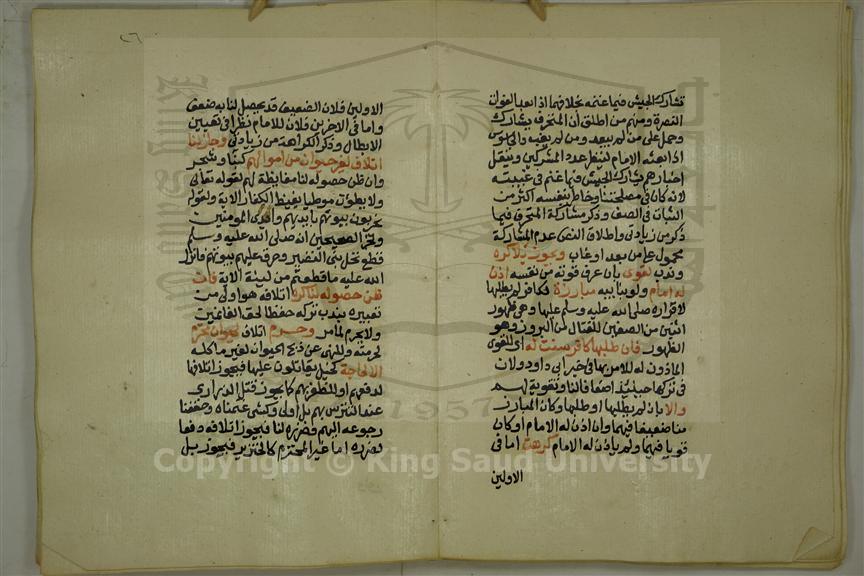 تشارك الجيش فيما غنمه بخلافهما اذا بعد الفوات
النصرة ومنهم من اطلق ان المتحرف يشارك
وحمل على من لم يبعد ومن لم يغب والجاسوس
اذا بعثه الامام لينظر عدد المشركين وينقل
اخبارهم يشارك الجيش فيما غنم في غيبته
لانه كان في مصلحتنا وخاطر بنفسه اكثر من
الثبات في الصف وذكر مشاركة المتحرف فيما
ذكر من زيادتي واطلاق النص عدم المشاركة
محمول على من بعد او غاب وتجوز بلا كره
وندب لقوي بان عرف قوته من نفسه اذن
له امام ولو بنايبه مبارزة لكافر لم يطلبها
لاقراره صلى الله عليه وسلم عليها وهي ظهور
اثنين من الصفين للقتال من البروز وهو
الظهور فان طلبها كافر سنت له اي للقوي
الماذون له للامر بها في خبر ابي داود ولان
في تركها حينئذ اضعافا لنا وتقوية لهم
والا بان لم يطلبها او طلبها وكان المبارز
منا ضعيفا فيهما وان اذن له الامام او كان
قويا فيهما ولم ياذن له الامام كرهت اما في
الاولين
٢٦
الاولين فلان الضعيف قد يحصل لنا به ضعف
واما في الاخرين فلان للامام نظرا في تعيين
الابطال وذكر الكراهة من زيادتي وجاز لنا
اتلاف لغير حيوان من اموالهم كبنا وشجر
وان ظن حصوله لنا مغايظة لهم لقوله تعالى
ولا يطؤن موطيا يغيظ الكفار الاية ولقوله
يخربون بيوتهم بايديهم وايدي المومنين
ولخبر الصحيحين انه صلى الله عليه وسلم
قطع نخل بني النضير وحرق عليهم بيوتهم فانزل
الله عليه ما قطعتم من لينة الاية فان
ظن حصوله لنا كره اتلافه هو اولى من
تعبيره بندب تركه حفظا لحق الغانمين
ولا يحرم لما مر وحرم اتلاف لحيوان محترم
لحرمته وللنهي عن ذبح الحيوان لغير ماكله
الا لحاجة كخيل يقاتلون عليها فيجوز اتلافها
لدفعهم او للظفر بهم كما يجوز قتل الذراري
عند التترس بهم بل اولى وكشي غنمناه وخفنا
رجوعه اليهم وضرره لنا فيجوز اتلافه دفعا
لضرره اما غير المحترم كالخنزير فيجوز بل
Copyright © King Saud University
1957